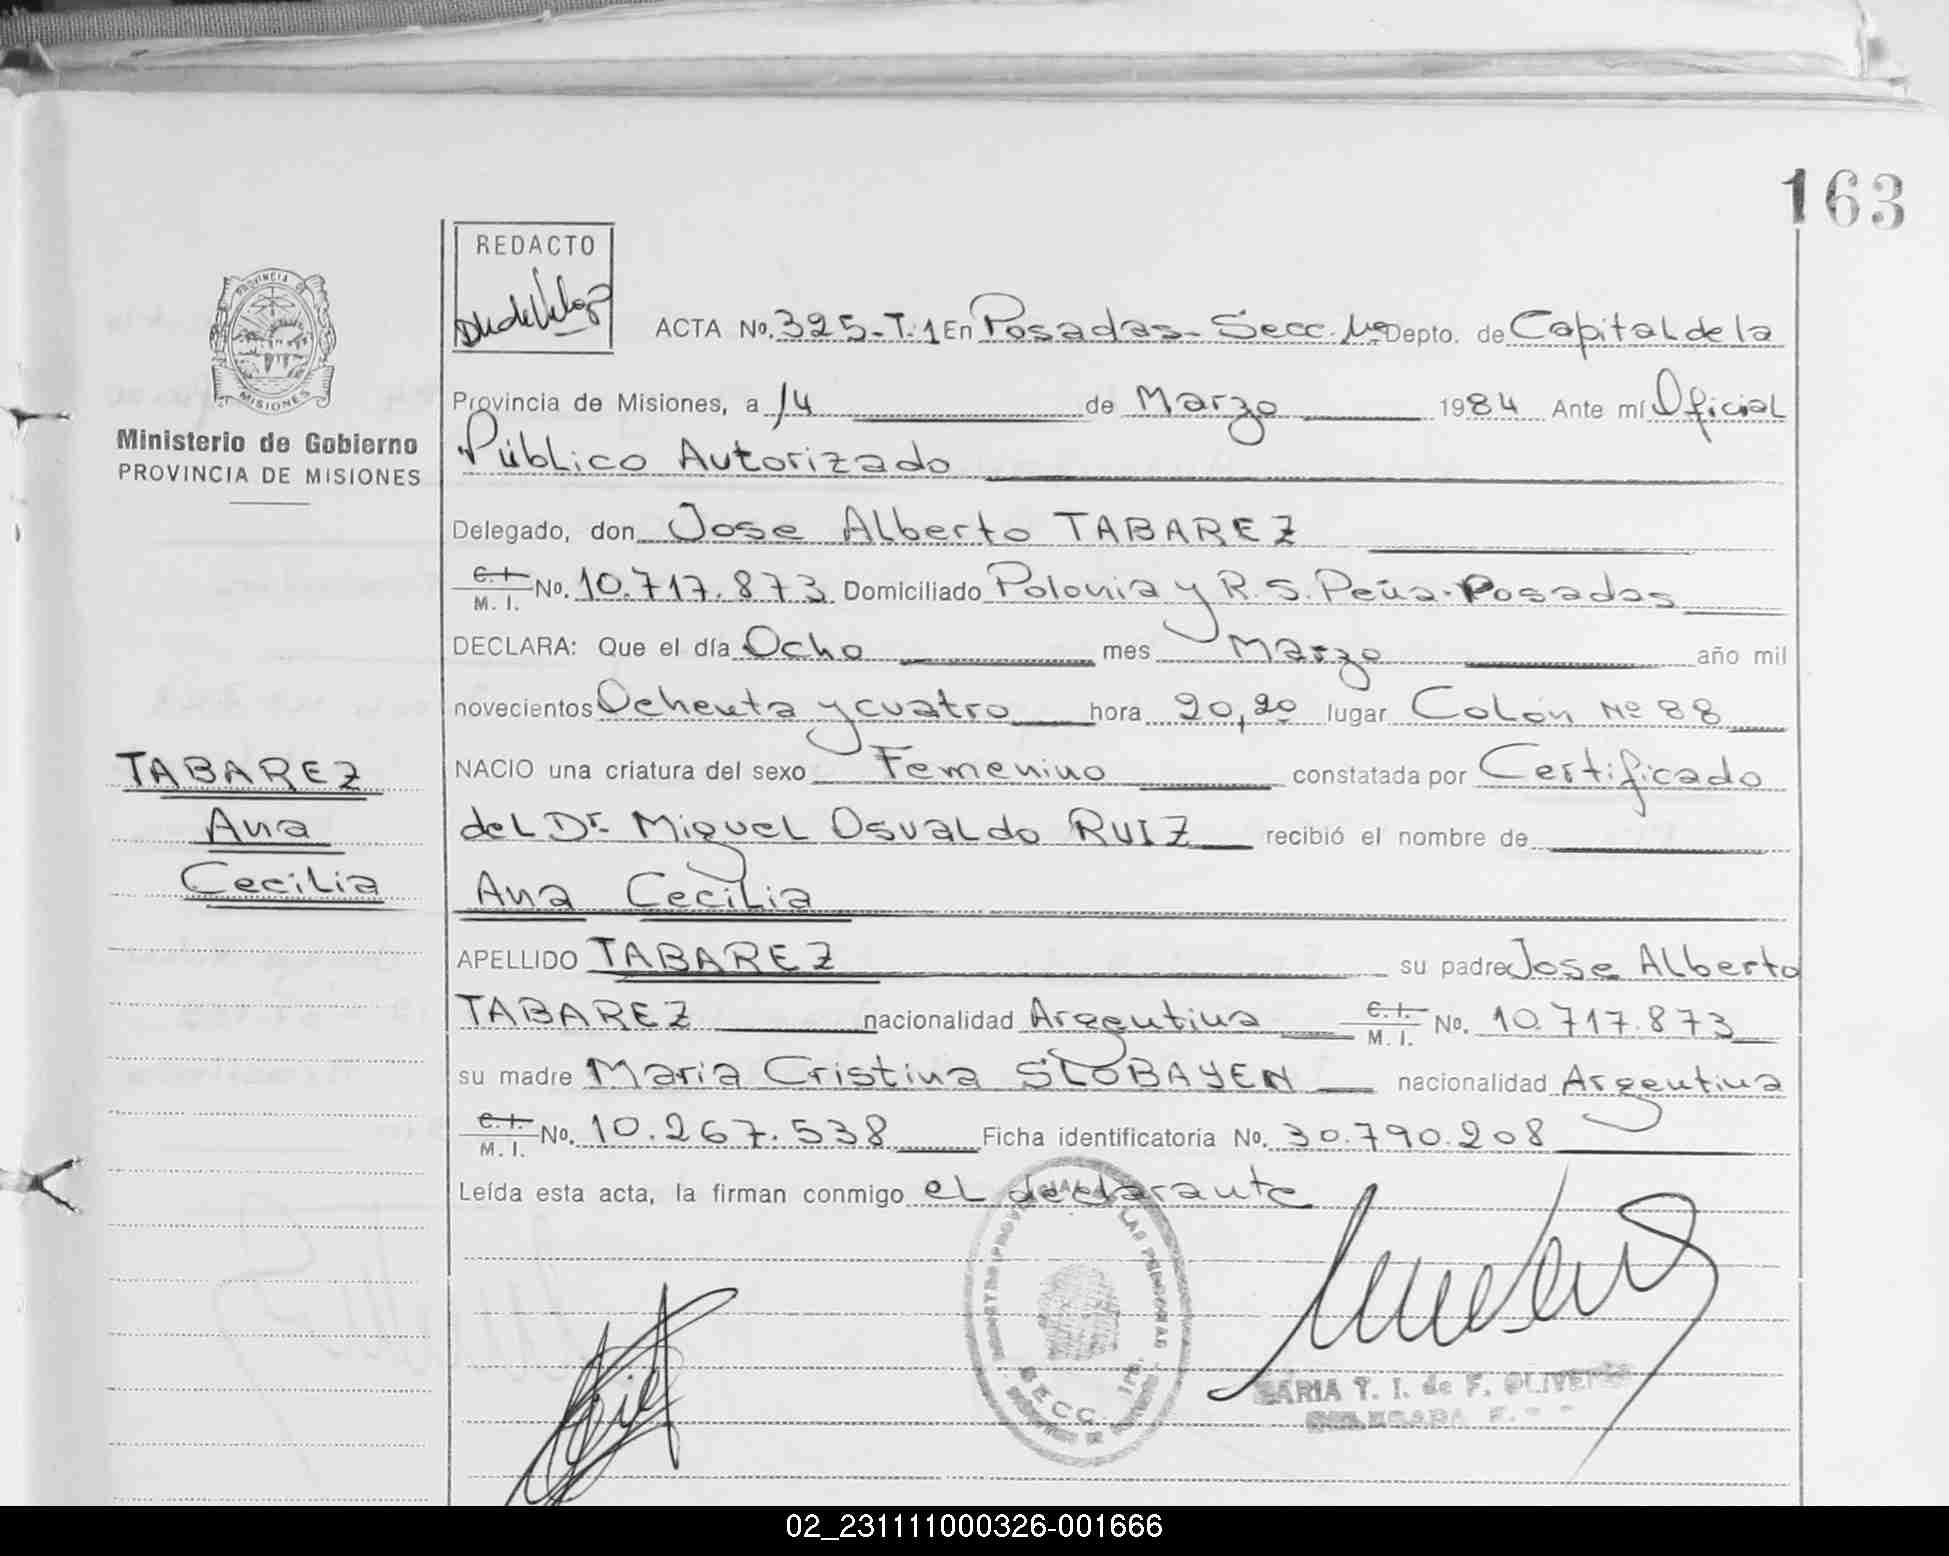 163
REDACTO
PROVINCIA DE
MISIONES
Ministerio de Gobierno
PROVINCIA DE MISIONES
ACTA No. 325-T.1 En Posadas- Secc. 1ª Depto. de Capital de la
Provincia de Misiones, a 14 de Marzo 1984 Ante mí Oficial
Público Autorizado
Delegado, don Jose Alberto TABAREZ
C.I. M. I. No. 10.717.873 Domiciliado Polonia y R. S. Peña. Posadas
DECLARA: Que el día Ocho mes Marzo año mil
novecientos Ochenta y cuatro hora 20,20 lugar Colón Nº 88
NACIO una criatura del sexo Femenino constatada por Certificado
del Dr. Miguel Osvaldo RUIZ recibió el nombre de
Ana Cecilia
APELLIDO TABAREZ su padre Jose Alberto
TABAREZ nacionalidad Argentina C.I. M. I. No. 10.717.873
su madre Maria Cristina SLOBAYEN nacionalidad Argentina
C.I. M. I. No. 10.267.538 Ficha identificatoria No. 30.790.208
Leída esta acta, la firman conmigo el declarante
TABAREZ
Ana
Cecilia
SECC.
MARIA T. I. de F. OLIVERA
02_231111000326-001666